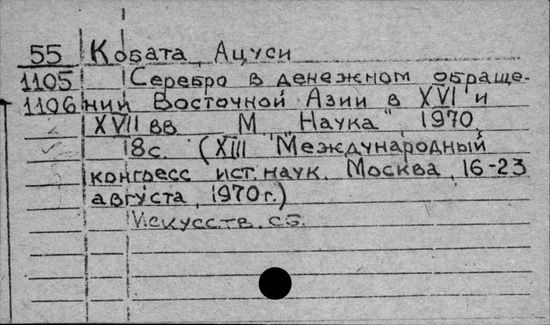 55 Кобата, Ацуси
1105 Серебро в денежном обраще-
1106 нии Восточной Азии в XVI и
XVII вв М "Наука" 1970,
18с. (XIII Международный
конгресс ист. наук. Москва, 16-23
августа, 1970г.)
Искусств. сб.